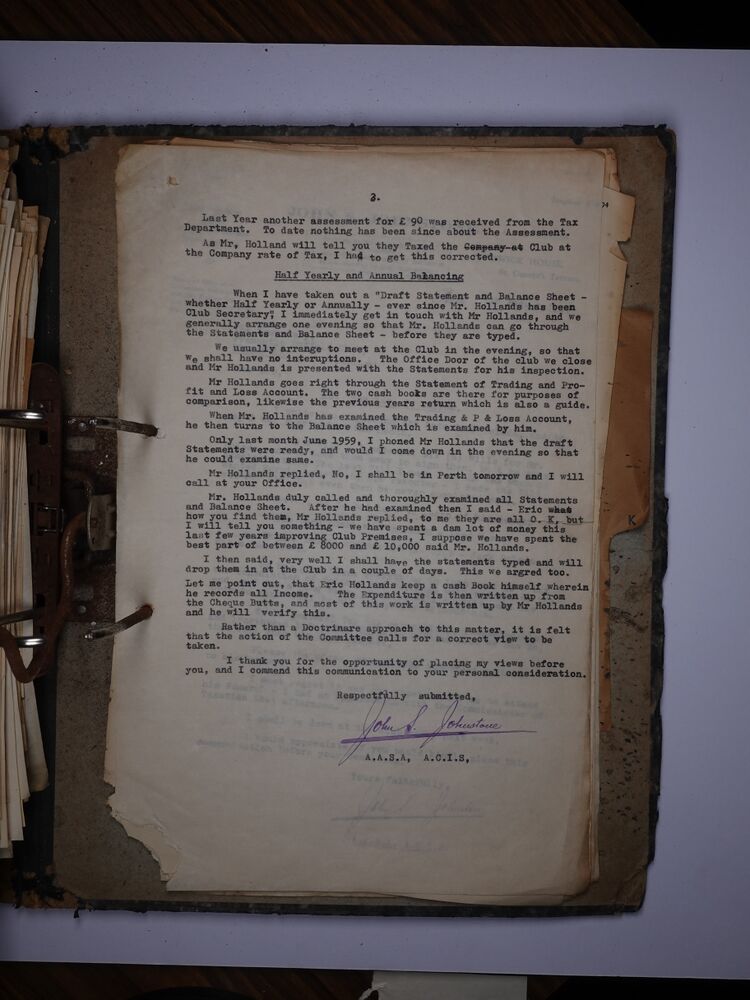 3.
Last Year another assessment for £ 90 was received from the Tax
Department. To date nothing has been since about the Assessment.
As Mr, Holland will tell you they Taxed the Company at Club at
the Company rate of Tax, I had to get this corrected.
Half Yearly and Annual Balancing
When I have taken out a "Draft Statement and Balance Sheet -
whether Half Yearly or Annually - ever since Mr. Hollands has been
Club Secretary", I immediately get in touch with Mr Hollands, and we
generally arrange one evening so that Mr. Hollands can go through
the Statements and Balance Sheet - before they are typed.
We usually arrange to meet at the Club in the evening, so that
we shall have no interuptions. The Office Door of the club we close
and Mr Hollands is presented with the Statements for his inspection.
Mr Hollands goes right through the Statement of Trading and Pro-
fit and Loss Account. The two cash books are there for purposes of
comparison, likewise the previous years return which is also a guide.
When Mr. Hollands has examined the Trading & P & Loss Account,
he then turns to the Balance Sheet which is examined by him.
Only last month June 1959, I phoned Mr Hollands that the draft
Statements were ready, and would I come down in the evening so that
he could examine same.
Mr Hollands replied, No, I shall be in Perth tomorrow and I will
call at your Office.
Mr. Hollands duly called and thoroughly examined all Statements
and Balance Sheet. After he had examined then I said - Eric what
how you find them, Mr Hollands replied, to me they are all O. K, but
I will tell you something - we have spent a dam lot of money this
last few years improving Club Premises, I suppose we have spent the
best part of between £ 8000 and £ 10,000 said Mr. Hollands.
I then said, very well I shall have the statements typed and will
drop them in at the Club in a couple of days. This we argred too.
Let me point out, that Eric Hollands keep a cash Book himself wherein
he records all Income. The Expenditure is then written up from
the Cheque Butts, and most of this work is written up by Mr Hollands
and he will verify this.
Rather than a Doctrinare approach to this matter, it is felt
that the action of the Committee calls for a correct view to be
taken.
I thank you for the opportunity of placing my views before
you, and I commend this communication to your personal consideration.
Respectfully submitted,
John S. Johnstone
A.A.S.A, A.C.I.S,
Yours faithfully,
K